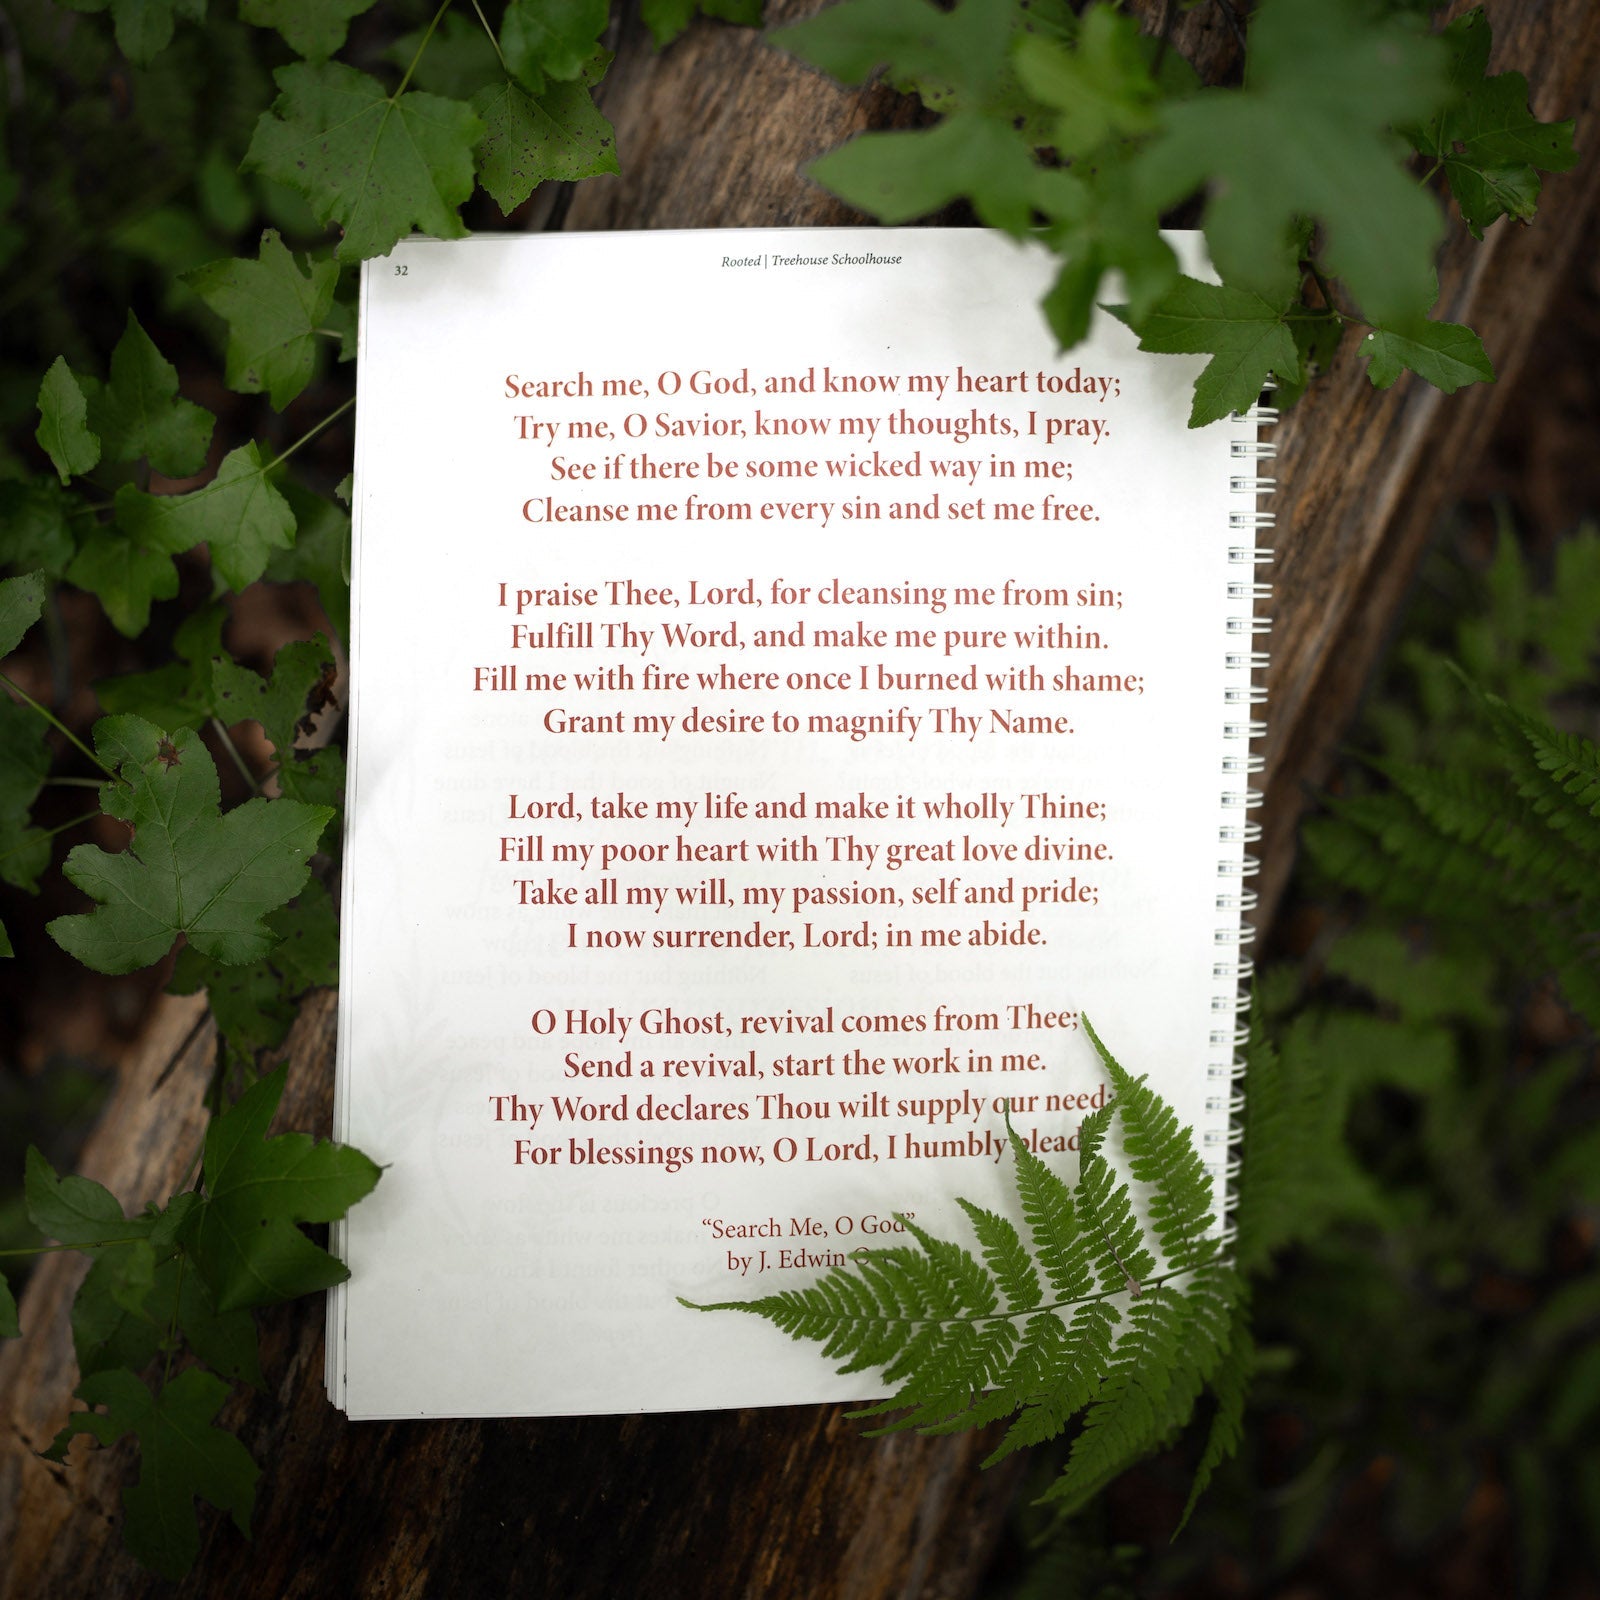 32
Rooted | Treehouse Schoolhouse
Search me, O God, and know my heart today;
Try me, O Savior, know my thoughts, I pray.
See if there be some wicked way in me;
Cleanse me from every sin and set me free.
I praise Thee, Lord, for cleansing me from sin;
Fulfill Thy Word, and make me pure within.
Fill me with fire where once I burned with shame;
Grant my desire to magnify Thy Name.
Lord, take my life and make it wholly Thine;
Fill my poor heart with Thy great love divine.
Take all my will, my passion, self and pride;
I now surrender, Lord; in me abide.
O Holy Ghost, revival comes from Thee;
Send a revival, start the work in me.
Thy Word declares Thou wilt supply our need;
For blessings now, O Lord, I humbly plead
“Search Me, O God”
by J. Edwin